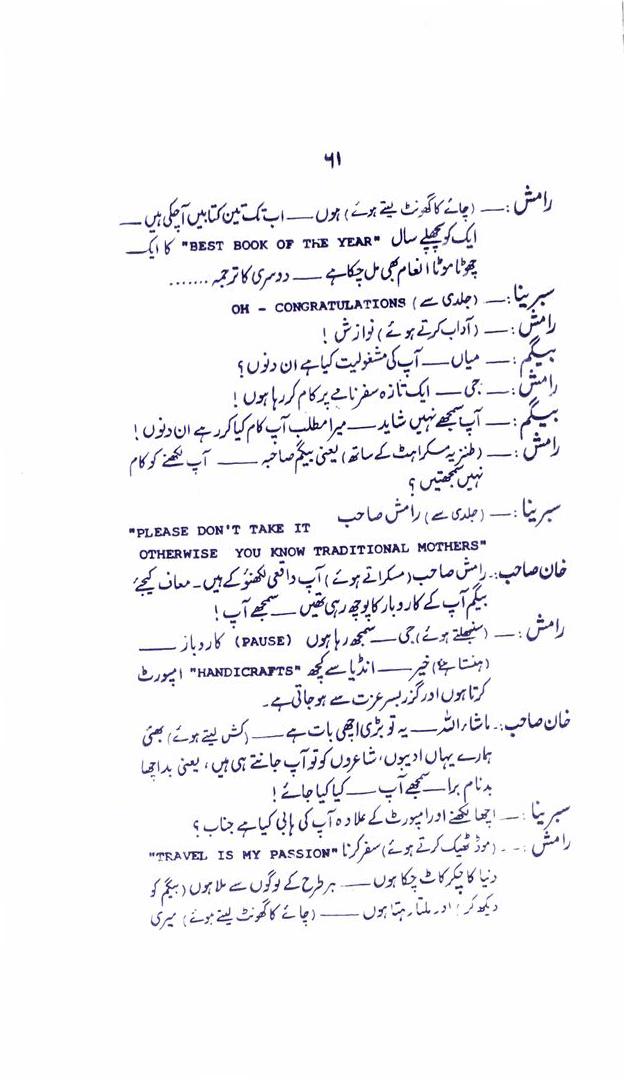 ۶۱
رامش :— (چائے کا گھونٹ لیتے ہوئے) ہوں —— اب تک تین کتابیں آ چکی ہیں —
ایک کو پچھلے سال "BEST BOOK OF THE YEAR" کا ایک
چھوٹا موٹا انعام بھی مل چکا ہے —— دوسری کا ترجمہ .......
سبرینا :— (جلدی سے) OH - CONGRATULATIONS
رامش :— (آداب کرتے ہوئے) نوازش !
بیگم :— میاں —— آپ کی مشغولیت کیا ہے ان دنوں ؟
رامش :— جی —— ایک تازہ سفر نامے پر کام کر رہا ہوں !
بیگم :— آپ سمجھے نہیں شاید —— میرا مطلب آپ کام کیا کر رہے ان دنوں !
رامش :— (طنزیہ مسکراہٹ کے ساتھ) یعنی بیگم صاحبہ —— آپ لکھنے کو کام
نہیں سمجھتیں ؟
سبرینا :— (جلدی سے) رامش صاحب
"PLEASE DON'T TAKE IT
OTHERWISE YOU KNOW TRADITIONAL MOTHERS"
خان صاحب:۔ رامش صاحب (مسکراتے ہوئے) آپ واقعی لکھنؤ کے ہیں۔ معاف کیجئے
بیگم آپ کے کاروبار کا پوچھ رہی تھیں —— سمجھے آپ !
رامش :— (سنبھلتے ہوئے) جی —— سمجھ رہا ہوں (PAUSE) کاروبار ——
(ہنستا ہے) خیر —— انڈیا سے کچھ "HANDICRAFTS" امپورٹ
کرتا ہوں اور گزر بسر عزت سے ہو جاتی ہے۔
خان صاحب:۔ ماشاء اللہ —— یہ تو بڑی اچھی بات ہے —— (کش لیتے ہوئے) بھئی
ہمارے یہاں ادیبوں، شاعروں کو تو آپ جانتے ہی ہیں، یعنی بد اچھا
بدنام برا —— سمجھے آپ —— کیا کیا جائے !
سبرینا :— اچھا لکھنے اور امپورٹ کے علاوہ آپ کی ہابی کیا ہے جناب ؟
رامش :۔۔ (موڈ ٹھیک کرتے ہوئے) سفر کرنا "TRAVEL IS MY PASSION"
دنیا کا چکر کاٹ چکا ہوں —— ہر طرح کے لوگوں سے ملا ہوں (بیگم کو
دیکھ کر) اور ملتا رہتا ہوں —— (چائے کا گھونٹ لیتے ہوئے) میری